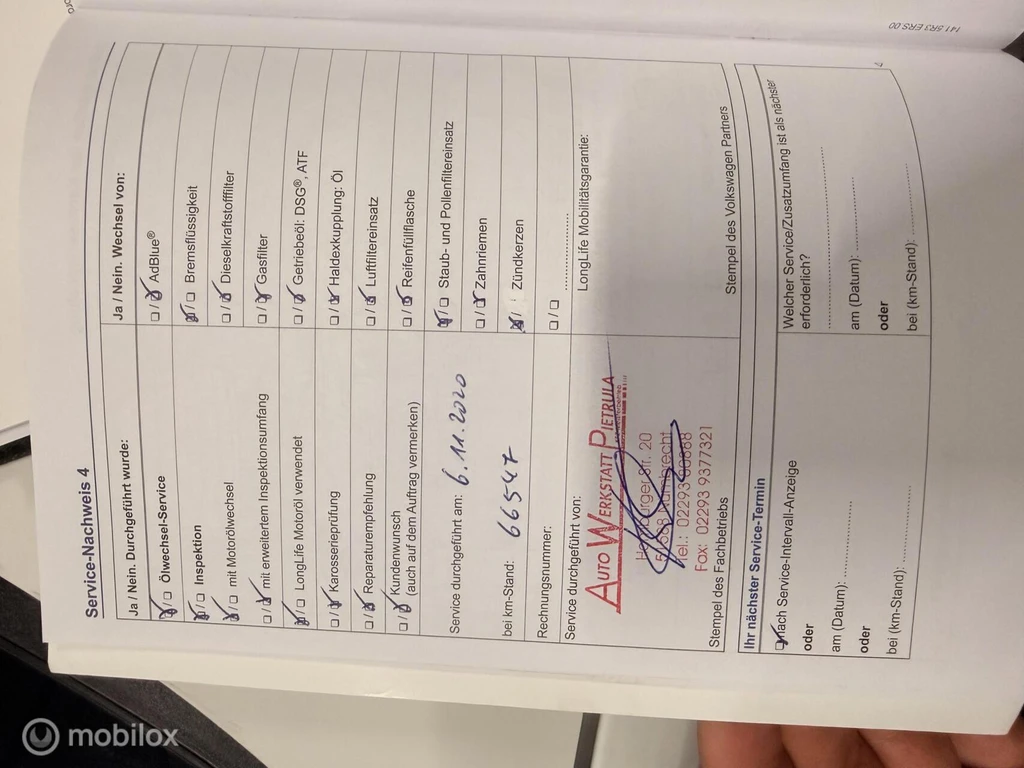 Service-Nachweis 4
Ja / Nein. Durchgeführt wurde:
☑ / ☐ Ölwechsel-Service
☑ / ☐ Inspektion
☑ / ☐ mit Motorölwechsel
☐ / ☑ mit erweitertem Inspektionsumfang
☑ / ☐ LongLife Motoröl verwendet
☐ / ☑ Karosserieprüfung
☐ / ☑ Reparaturempfehlung
☐ / ☑ Kundenwunsch
(auch auf dem Auftrag vermerken)
Service durchgeführt am: 6.11.2020
bei km-Stand: 66547
Rechnungsnummer:
Service durchgeführt von:
AUTO WERKSTATT PIETRULA
Str. 20
Tel.: 02293
Fax: 02293 9377321
Stempel des Fachbetriebs
Ja / Nein. Wechsel von:
☐ / ☑ AdBlue®
☑ / ☐ Bremsflüssigkeit
☐ / ☑ Dieselkraftstofffilter
☐ / ☑ Gasfilter
☐ / ☑ Getriebeöl: DSG®, ATF
☐ / ☑ Haldexkupplung: Öl
☐ / ☑ Luftfiltereinsatz
☐ / ☑ Reifenfüllflasche
☑ / ☐ Staub- und Pollenfiltereinsatz
☐ / ☑ Zahnriemen
☑ / Zündkerzen
☐ / ☐ ....................
LongLife Mobilitätsgarantie:
Stempel des Volkswagen Partners
Ihr nächster Service-Termin
☑ nach Service-Intervall-Anzeige
oder
am (Datum): ....................
oder
bei (km-Stand): ....................
Welcher Service/Zusatzumfang ist als nächster
erforderlich?
am (Datum): ....................
oder
bei (km-Stand): ....................
141.5R3.ERS.00
mobilox